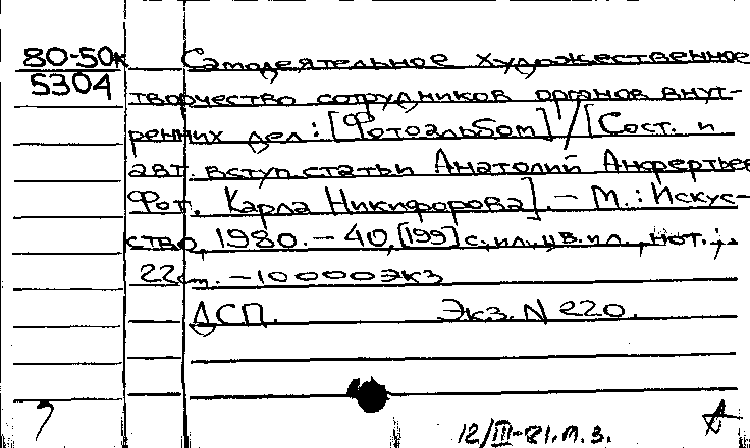 80-50к Самодеятельное художественное
5304 творчество сотрудников органов внут-
ренних дел: [Фотоальбом] / [Сост. и
авт. вступ. статьи Анатолий Анфертьев
Фот. Карла Никифорова]. - М.: Искус-
ство, 1980. - 40, [199] с., ил., цв. ил., нот.;
22см. - 10 000 экз
ДСП. Экз. N 220.
12/III-81. м. з.